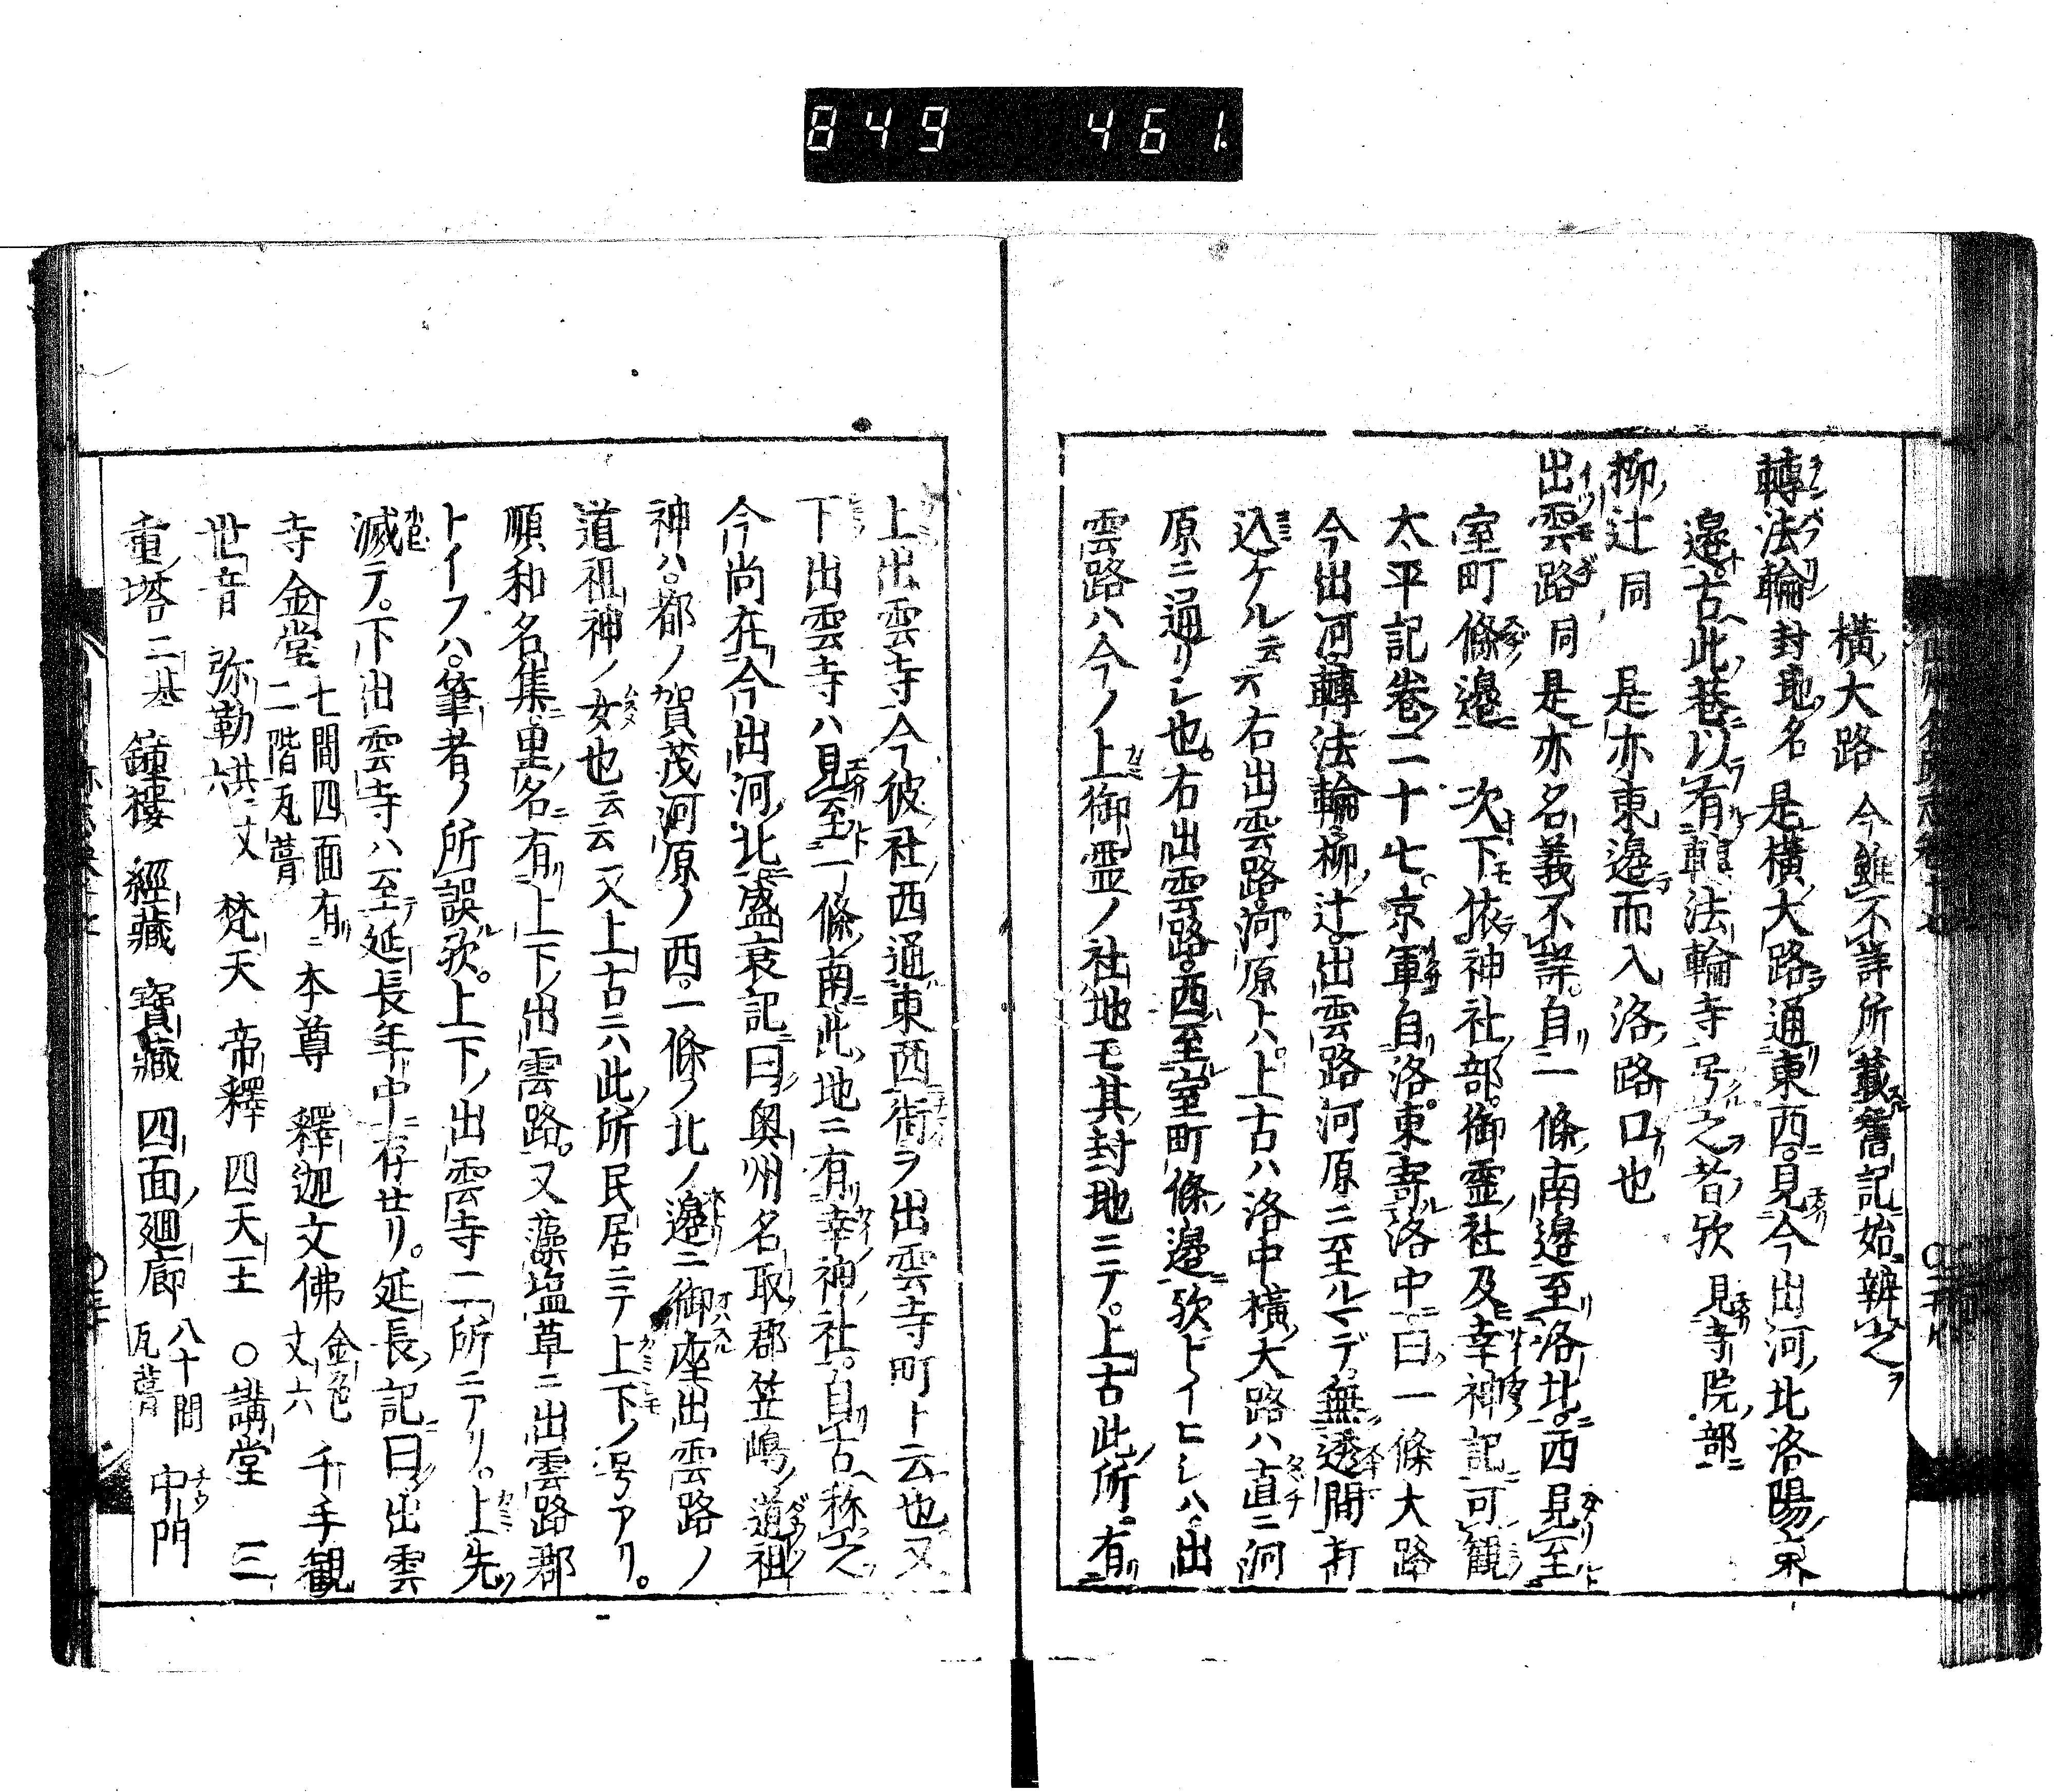 849 461.
横大路 今雖不詳所載舊記始辨之
轉法輪 封地名 是横大路通東西見今出河北洛陽東
邊古此巷以有轉法輪寺号之者欤 見寺院部
柳辻 同 是亦東邊而入洛路口也
出雲路 同 是亦名義不詳自二條南邊至洛北西見至
室町條邊 次下依神社部御霊社及幸神記可観
太平記巻二十七京軍自洛東寄洛中曰一條大路
今出河轉法輪柳辻出雲路河原ニ至ルマデ無透間打
込ケル云云右出雲路河原トハ上古ハ洛中横大路ハ直ニ河
原ニ通リシ也右出雲路西至室町條邊欤トイヒシハ出
雲路ハ今ノ上御霊ノ社地モ其封地ニテ上古此所有
上出雲寺今彼社西通東西街ヲ出雲寺町ト云也又
下出雲寺ハ見至一條南此地ニ有幸神社自古称之
今尚在今出河北盛衰記曰奥州名取郡笠嶋道祖
神ハ都ノ賀茂河原ノ西一條ノ北ノ邊ニ御座出雲路ノ
道祖神ノ女也云云又上古ニハ此所民居ニテ上下ノ号アリ
順和名集里名有上下出雲路又藻塩草ニ出雲路郡
トイフハ筆者ノ所誤欤上下ノ出雲寺二所ニアリ上先
滅テ下出雲寺ハ至延長年中存セリ延長記曰出雲
寺 金堂 七間四面有二階瓦葺 本尊 釋迦文佛 金色丈六 千手観
世音 弥勒 丈 梵天 帝釋 四天王 ○講堂 三
重塔二基 鐘樓 經藏 寶藏 四面廻廊 八十間瓦葺 中門